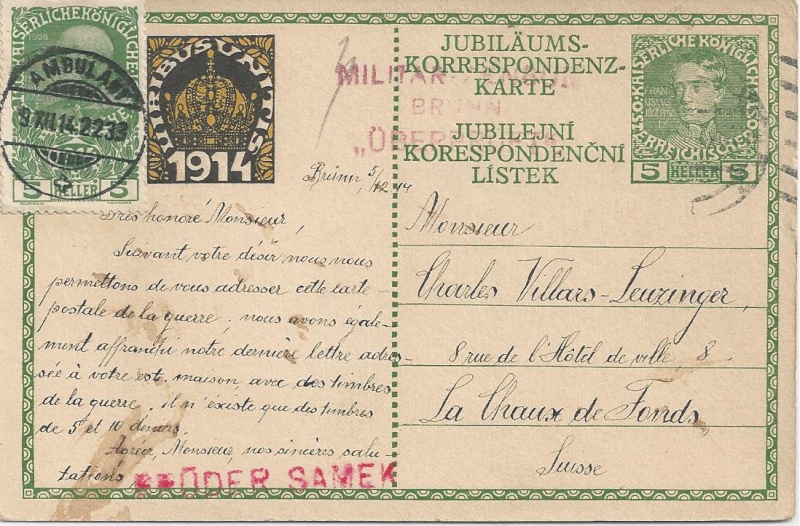 1908
KAISERLICHE KÖNIGLICHE
AMBULANT
9.XII.14.2233
5 HELLER 5
VIRIBUS UNITIS
1914
JUBILÄUMS-
KORRESPONDENZ-
KARTE
JUBILEJNÍ
KORESPONDENČNÍ
LÍSTEK
MILITÄR-ZENSUR
BRÜNN
„ÜBERPRÜFT“
KAISERLICHE KÖNIGLICHE
ÖSTERREICHISCHE
5 HELLER 5
Brünn 5/12 14
Très honoré Monsieur,
Suivant votre désir nous nous
permettons de vous adresser cette carte-
postale de la guerre; nous avons égale-
ment affranchi notre dernière lettre adres-
sée à votre est. maison, avec des timbres
de la guerre; il n'existe que des timbres
de 5 et 10
Agréez, Monsieur, nos sincères salu-
tations
BRÜDER SAMEK
Monsieur
Charles Villars-Leuzinger,
8 rue de l'Hôtel de ville, 8
La Chaux de Fonds,
Suisse,